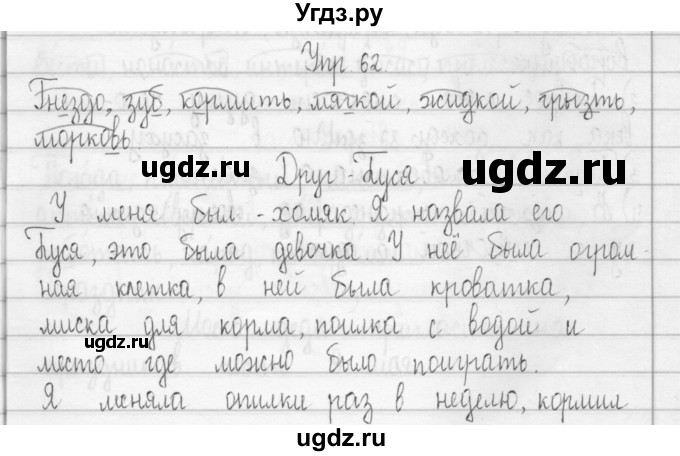 Угдз.ру
Упр. 62
Гнездо, зуб, кормить, мягкой, жидкой, грызть,
морковь.
ugdz.ru
ugdz.ru
Друг - Буся
У меня был - хомяк. Я назвала его
Буся, это была девочка У неё была огром-
ugdz.ru
ная клетка, в ней была кроватка,
миска для корма, поилка с водой и
ugdz.ru
место где можно было поиграть.
Я меняла опилки раз в неделю, кормил
ugdz.ru